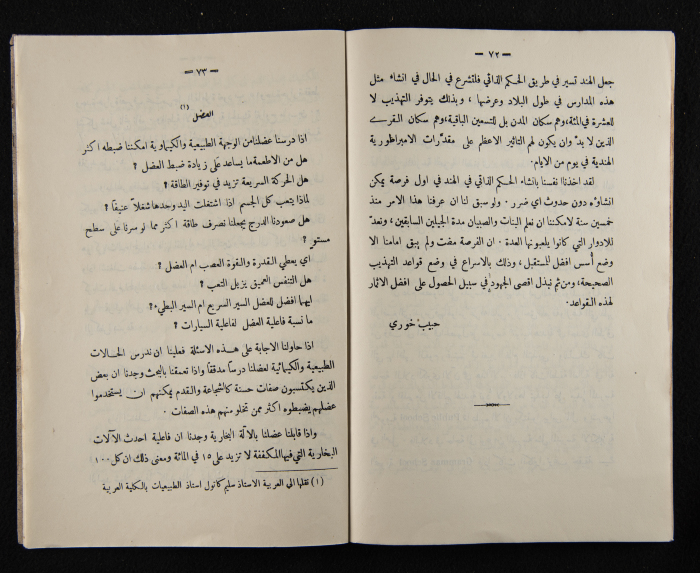 — ٧٢ —
جعل الهند تسير في طريق الحكم الذاتي فلتشرع في الحال في انشاء مثل
هذه المدارس في طول البلاد وعرضها ، وبذلك يتوفر التهذيب لا
للعشرة في المئة ، وهم سكان المدن بل للتسعين الباقية ، وهم سكان القرى
الذين لا بدّ وان يكون لهم التاثير الاعظم على مقدّرات الامبراطورية
الهندية في يوم من الايام .
لقد اخذنا نفسنا بانشاء الحكم الذاتي في الهند في اول فرصة يمكن
انشاؤه دون حدوث اي ضرر . ولو سبق لنا ان عرفنا هذا الامر منذ
خمسين سنة لامكننا ان نعلم البنات والصبيان مدة الجيلين السابقين ، ونعدّ
للادوار التي كانوا يلعبونها العدة . ان الفرصة مضت ولم يبق امامنا الا
وضع أسس افضل للمستقبل ، وذلك بالاسراع في وضع قواعد التهذيب
الصحيحة ، ومن ثم نبذل اقصى الجهود في سبيل الحصول على افضل الاثمار
لهذه القواعد .
حبيب خوري
— ٧٣ —
العضل (١)
اذا درسنا عضلنا من الوجهة الطبيعية والكيماوية امكننا ضبطه اكثر
هل من الاطعمة ما يساعد على زيادة ضبط العضل ؟
هل الحركة السريعة تزيد في توفير الطاقة ؟
لماذا يتعب كل الجسم اذا اشتغلت اليد وحدها شغلاً عنيفاً ؟
هل صعودنا الدرج يجعلنا نصرف طاقة اكثر مما لو سرنا على سطح
مستو ؟
اي يعطي القدرة والقوة العصب ام العضل ؟
هل التنفس العميق يزيل التعب ؟
ايهما افضل للعضل السير السريع ام السير البطيء ؟
ما نسبة فاعلية العضل لفاعلية السيارات ؟
اذا حاولنا الاجابة على هذه الاسئلة فعلينا ان ندرس الحالات
الطبيعية والكيمائية لعضلنا درساً مدققاً واذا تعمقنا بالبحث وجدنا ان بعض
الذين يكتسبون صفات حسنة كالشجاعة والتقدم يمكنهم ان يستخدموا
عضلهم بضبطوه اكثر ممن تخلو منهم هذه الصفات .
واذا قابلنا عضلنا بالآلة البخارية وجدنا ان فاعلية احدث الآلات
البخارية التي فيها المكثفة لا تزيد على ١٥ في المائة ومعنى ذلك ان كل ١٠٠
(١) نقلها الى العربية الاستاذ سليم كاتول استاذ الطبيعيات بالكلية العربية